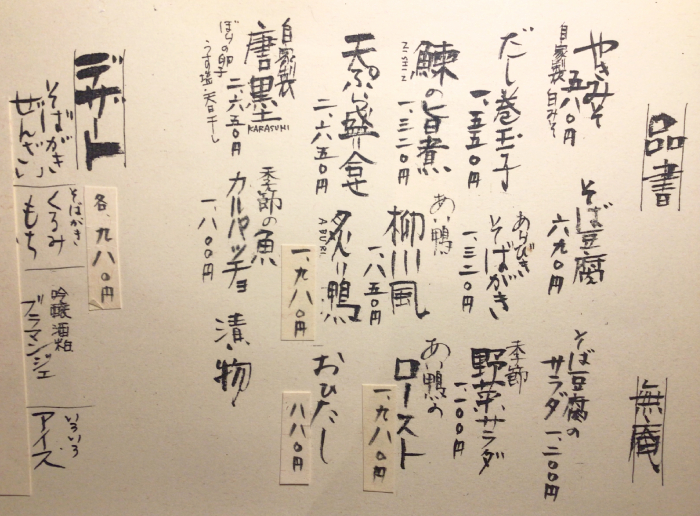 品書
無庵
やきみそ
自家製 白みそ
五八〇円
そば豆腐
六九〇円
そば豆腐の
サラダ 一、二〇〇円
だし巻玉子
一、五五〇円
あらびき
そばがき
一、三二〇円
季節
野菜サラダ
一、一〇〇円
鰊の旨煮
NISIN
一、三二〇円
あい鴨
柳川風
一、八五〇円
あい鴨の
ロースト
一、九八〇円
天ぷら盛り合せ
二、六五〇円
炙り鴨
ABURI
一、九八〇円
おひたし
八八〇円
自家製
唐墨
KARASUMI
ぼらの卵子
うす塩・天日干し
二、六五〇円
季節の魚
カルパッチョ
一、八〇〇円
漬け物
デザート
各、九八〇円
そばがき
ぜんざい
そばがき
くるみ
もち
吟醸酒粕
ブラマンジェ
いろいろ
アイス